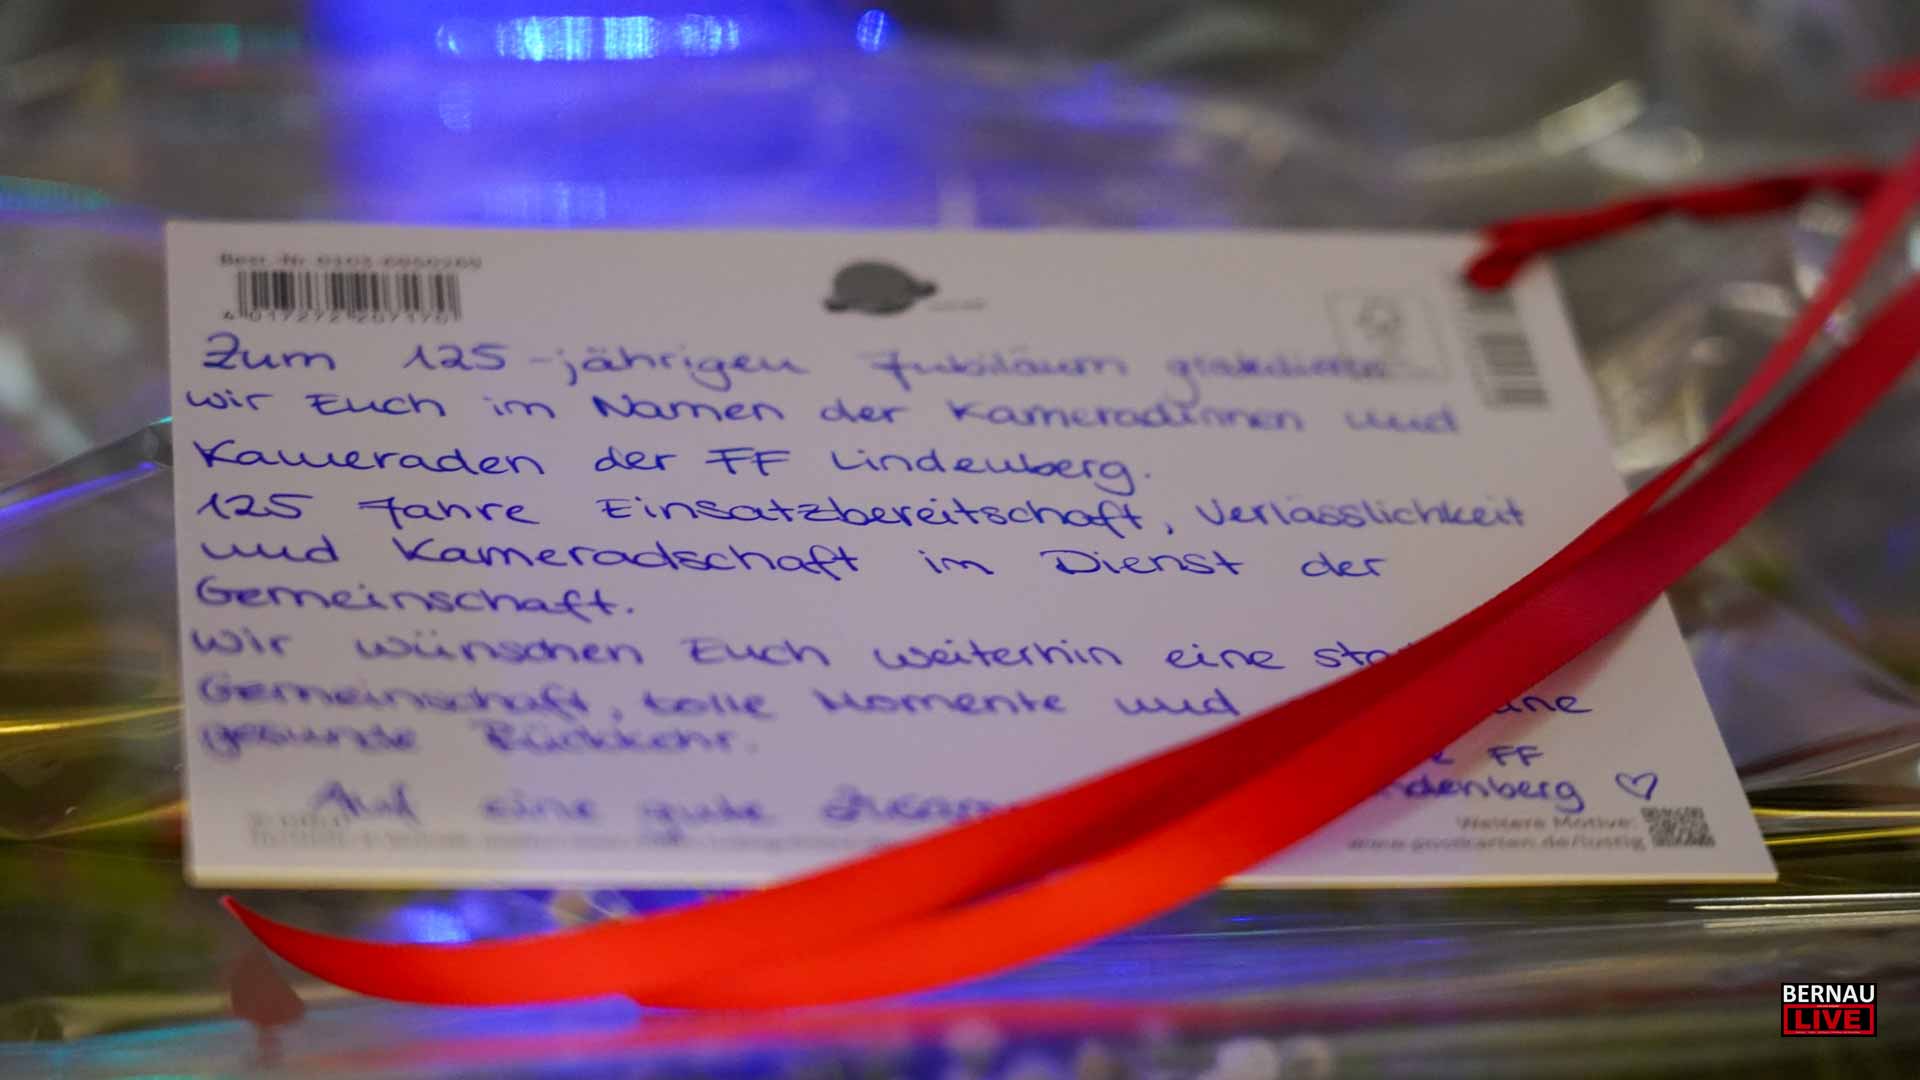 Best.-Nr. 0101-
4 017272
Zum 125-jährigen Jubiläum gratulieren
wir Euch im Namen der KameradInnen und
Kameraden der FF Lindenberg.
125 Jahre Einsatzbereitschaft, Verlässlichkeit
und Kameradschaft im Dienst der
Gemeinschaft.
Wir wünschen Euch weiterhin eine sta
Gemeinschaft, tolle Momente und
gesunde Rückkehr.
Auf eine gute
FF
denberg ♡
Weitere Motive:
www.postkarten.de/lustig
BERNAU
LIVE